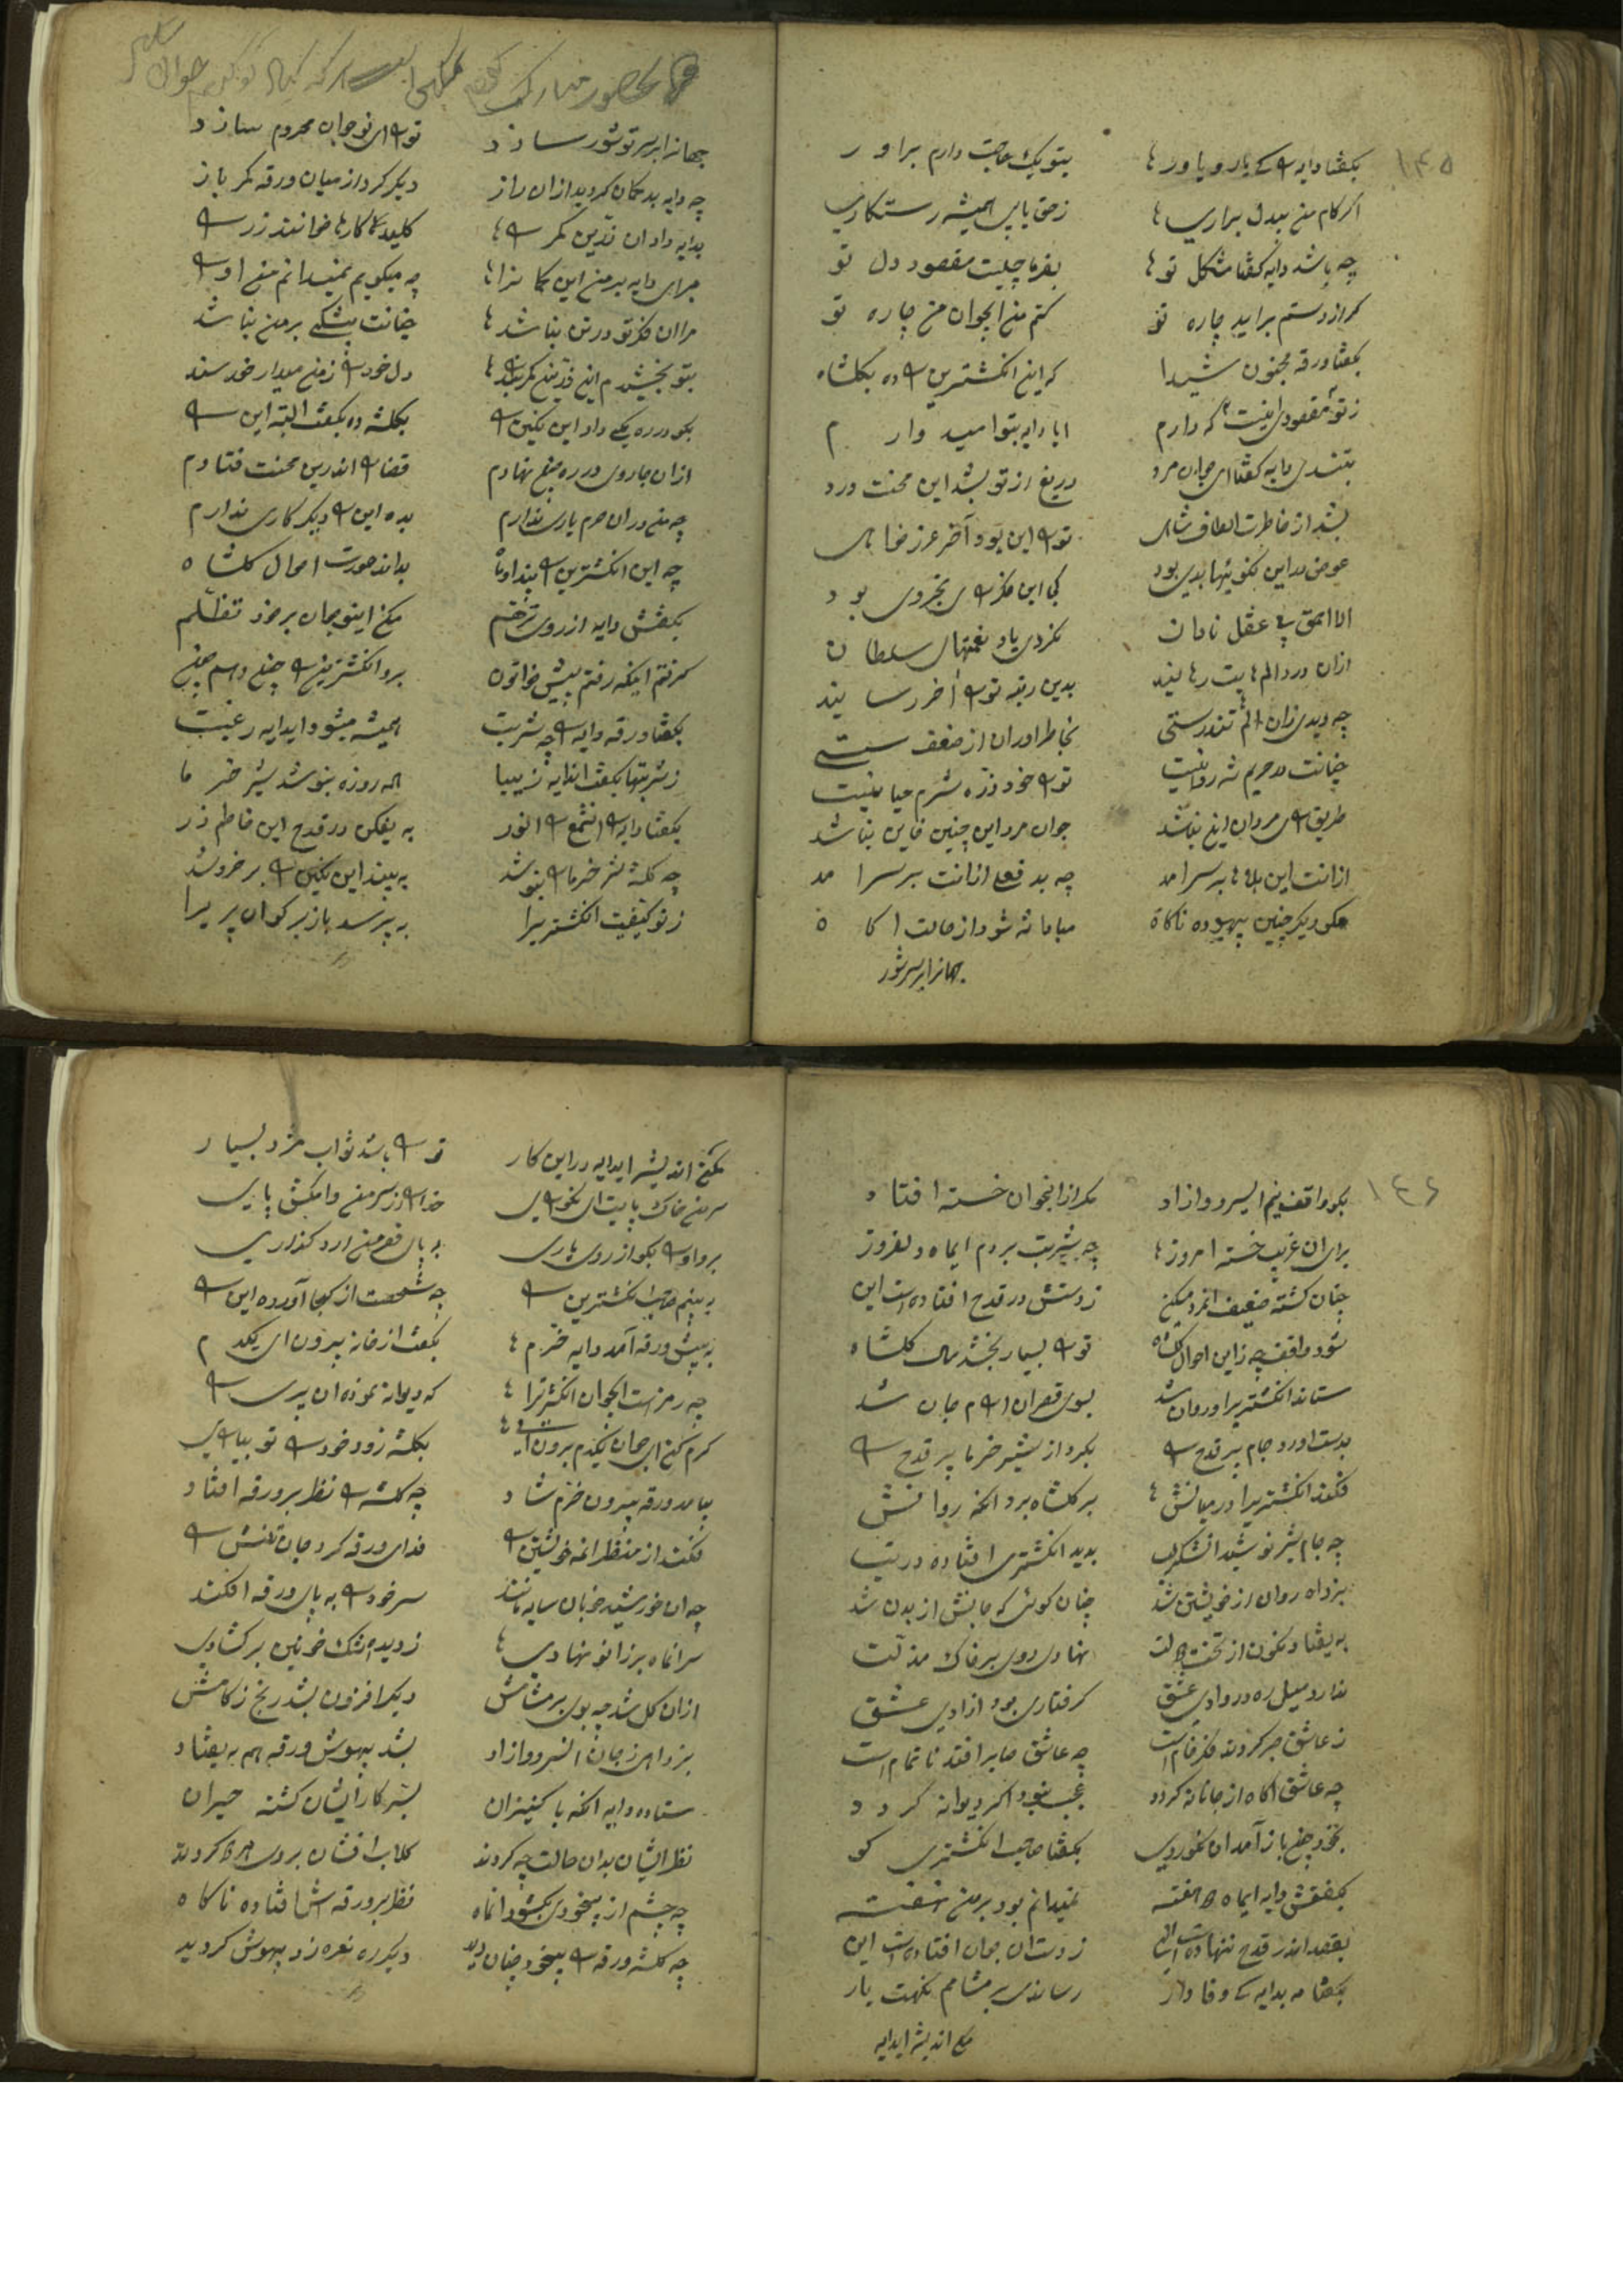 ۱۴۵
بگفتا دایه را کے یار و یاور بتو یک حاجت دارم براور
اگر کام من بیدل براری ز حق یابی همیشه رستکاری
چه باشد دایه گفتا مشکل تو بفرما چیست مقصود دل تو
گر از دستم براید چاره تو کنم من ایجوان من چاره تو
بگفتا ورقه مجنون شیدا که این انکشترین را ده بکلشاه
ز تو مقصودی اینست که دارم ایا دایه بتو امید وارم
بتندی دایه گفتا ای جوان مرد دریغ از تو بشد این محنت ورد
بشد از خاطرت الطاف شاهی ترا این بود آخر عزر خواهی
عوض در این نکوئیها بدی بود کی این فکر ی بخردی بود
الا احمق بی عقل نادان نکردی یاد نعمتهای سلطان
ازان درد الم هایت رهانید بدین رتبه ترا آخر رسانید
چه دیدی زان الم تندرستی بخاطر اور ان از ضعف سستی
خیانت در حریم شه روا نیست ترا خود ذره شرم حیا نیست
طریق مردان این نباشد جوان مرد این چنین خاین نباشد
ازانت این بلاها بر سر امد چه بد فعلی ازانت بر سر امد
مکو دیکر چنین بیهوده ناکاه مبادا شه شود از حالت اکاه
جهانرا بر سر شور
جهانرا بر سر تو شور سازد ترا ای نوجوان محروم سازد
چه دایه بد کمان کردید ازان راز دیکر کرد از میان ورقه کمر باز
بدایه داد ان زرین کمر را کلید کارها خوانند زر را
برای دایه بر من این کمانرا چه میکویم نمیدانم من او را
مرا ان فکر تو در تن نباشد خیانت بیشکے بر من نباشد
بتو بخشیدم این زرین کمربند دل خود را ز من میدار خورسند
بگو در ره یکے داد این نکین را بکلشه ده بگفت البته این را
ازان جا روی در ره من نهادم قضا را اندرین محنت فتادم
چه من در ان حرم یاری ندارم بده این را دیکر کاری ندارم
چه این انکشترین را بیند اوماه بداند صورت احوال کلشاه
بگفتش دایه از روی ترحم مکن اینوجوان بر خود تظلّم
گرفتم اینکه رفتم پیش خواتون برو انکشترین را چون دهم چون
بگفتا ورقه دایه را چه شربت همیشه میشود ایدایه رغبت
ز شربتها بگفت اندایه زیبا همه روزه بنوشد شیر خرما
بگفتا دایه را انشمع انور به یفکن در قدح این خاطم زر
چه کلشه شیر خرما را بنوشد به بیند این نکین را بر خروشد
ز تو کیفیت انکشتریرا به پرسد باز بر کو ان پریرا
۱۴۶
بگو واقف نیم ایسرو ازاد مکر از انجوان خسته افتاد
برای ان غریب خسته امروز چه شربت بردم ایماه دلفروز
چنان کشته ضعیف انمرد میکین ز دستش در قدح افتاده است این
شود واقف چه زاین احوال کلشاه ترا بسیار بخشد مال کلشاه
ستاند انکشتریرا و روان شد بسوی قصر ان ارام جان شد
بدست اورد جام پر قدح را بکرد از شیر خرما پر قدح را
فکند انکشتریرا در میانش بر کلشاه برد انکه روانش
چه جام شیر نوشید انشکر لب بدید انکشتری افتاده در تب
بزد اه روان از خویشتن شد چنان کوئی که جانش از بدن شد
به یفتاد نکون از تخت دولت نهادی روی بر خاک مذلّت
ندارد میل ره در وادی عشق گرفتاری بود ازادی عشق
ز عاشق صبر کردن فکر خام است چه عاشق صابر افتد ناتمام است
چه عاشق اکاه از جانانه کردد عجب نبود اکر دیوانه کردد
بخود چون باز آمد ان نکوروی بگفتا صاحب انکشتری کو
بگفتش دایه ایماه دو هفته نمیدانم بود بر من نهفته
بقصد اندر قدح ننهاده است این ز دست ان جوان افتاده است این
بگفتا مه بدایه کے وفادار رساندی بر مشامم نکهت یار
مکن اندیشه ایدایه
مکن اندیشه ایدایه در این کار ترا باشد ثواب مزد بسیار
سر من خاک پایت ای نکورای خدا را از سر من وامکش پای
برو او را بگو از روی یاری به پای قصر من ارد کذاری
به بینم صاحب انکشترین را چه شخصست از کجا آورده این را
به پیش ورقه آمد دایه خرّم بگفت از خانه بیرون ای یکدم
چه رمز است ایجوان انکشترترا که دیوانه نموده ان پری را
کرم کن ای جوان یکدم برون ای بکلشه زود خود را تو بیارای
بیامد ورقه بیرون خرّم شاد چه کلشه را نظر بر ورقه افتاد
فکند از منظر انمه خویشتن را فدای ورقه کرد جان تنش را
چه ان خورشید خوبان سایه مانند سر خود را به پای ورقه افکند
سر انماه بر زانو نهادی ز دیده اشک خونین برکشادی
ازان کل شد چه بوی بر مشامش دیکر افزون بشد رنج زکامش
بزد اهی ز جان انسرو ازاد بشد بیهوش ورقه هم به یفتاد
ستاده دایه انکه با کنیزان بسر کار ایشان کشته حیران
نظر ایشان بدان حالت چه کردند کلاب افشان بروی هر دو کردند
چه چشم از بیخودی بکشود انماه نظر بر ورقه اش افتاده ناکاه
چه کلشه ورقه را بیخود چنان دید دیکر ره نعره زد بیهوش کردید